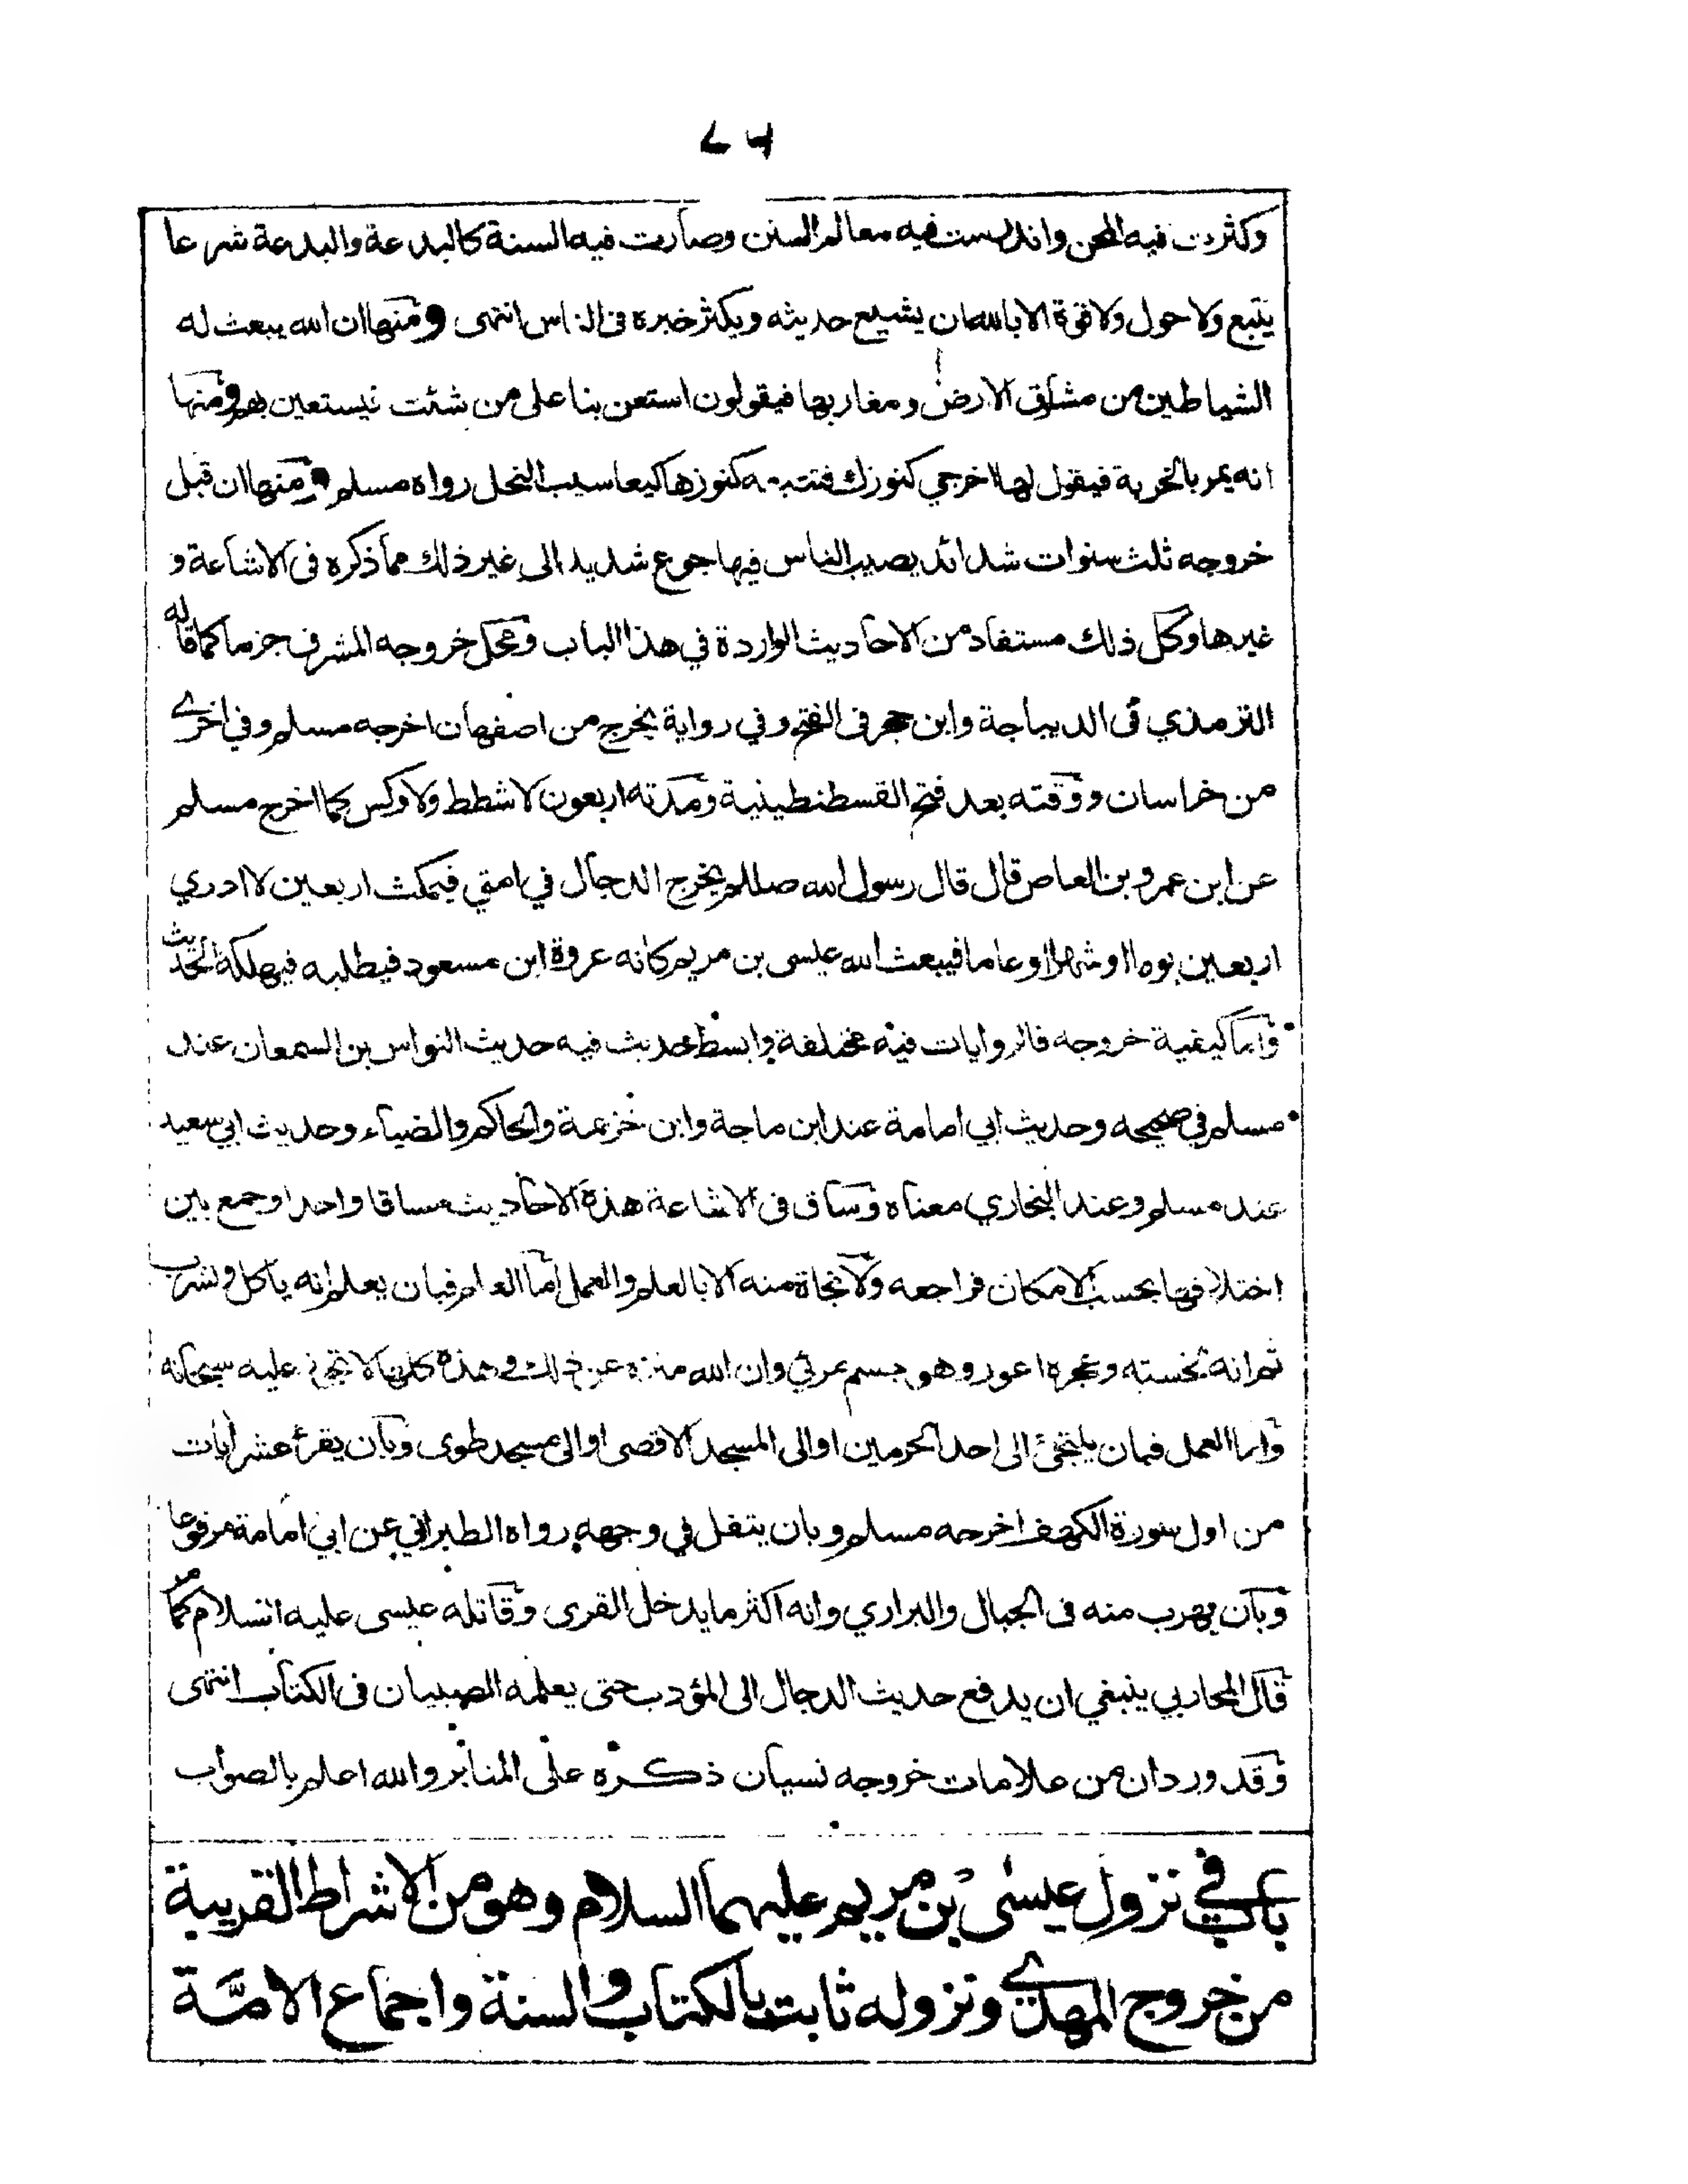 ٧٤
وكثرت فيه المحن واندرست فيه معالم السنن وصارت فيه السنة كالبدعة والبدعة شرعا
يتبع ولا حول ولا قوة الا بالله ان يشيع حديثه ويكثر خبره في الناس انتهى ومنها ان الله يبعث له
الشياطين من مشارق الارض ومغاربها فيقولون استعن بنا على من شئت فيستعين بهم ومنها
انه يمر بالخربة فيقول لها اخرجي كنوزك فتتبعه كنوزها كيعاسيب النحل رواه مسلم ومنها ان قبل
خروجه ثلث سنوات شدائد يصيب الناس فيها جوع شديد الى غير ذلك مما ذكره في الاشاعة و
غيرها وكل ذلك مستفاد من الاحاديث الواردة في هذا الباب ومحل خروجه المشرق جزما كما قاله
الترمذي في الديباجة وابن حجر في الفتح وفي رواية يخرج من اصفهان اخرجه مسلم وفي اخرى
من خراسان ووقته بعد فتح القسطنطينية ومدته اربعون لا شطط ولا وكس كما اخرج مسلم
عن ابن عمرو بن العاص قال قال رسول الله صللم يخرج الدجال في امتي فيمكث اربعين لا ادري
اربعين يوما او شهرا او عاما فيبعث الله عيسى بن مريم كانه عروة ابن مسعود فيطلبه فيهلكه الحديث
واما كيفية خروجه فالروايات فيه مختلفة وابسط حديث فيه حديث النواس بن السمعان عند
مسلم في صحيحه وحديث ابي امامة عند ابن ماجة وابن خزيمة والحاكم والضياء وحديث ابي سعيد
عند مسلم وعند البخاري معناه وساق في الاشاعة هذه الاحاديث مساقا واحدا وجمع بين
اختلافها بحسب الامكان فراجعه ولا نجاة منه الا بالعلم والعمل اما العلم فبان يعلم انه ياكل ويشرب
ثم انه بخسته وعجره اعور وهو جسم مرئي وان الله منزه عن ذلك وهذه كلها لا تجوز عليه سبحانه
واما العمل فبان يلتجئ الى احد الحرمين او الى المسجد الاقصى او الى مسجد طوى وبان يقرأ عشر ايات
من اول سورة الكهف اخرجه مسلم وبان يتفل في وجهه رواه الطبراني عن ابي امامة مرفوعا
وبان يهرب منه في الجبال والبراري وانه اكثر ما يدخل القرى وقاتله عيسى عليه السلام كما مر
قال المحاربي ينبغي ان يدفع حديث الدجال الى المؤدب حتى يعلمه الصبيان في الكتاب انتهى
وقد ورد ان من علامات خروجه نسيان ذكره على المنابر والله اعلم بالصواب
باب في نزول عيسى بن مريم عليهما السلام وهو من الاشراط القريبة
من خروج المهدي ونزوله ثابت بالكتاب والسنة واجماع الامة